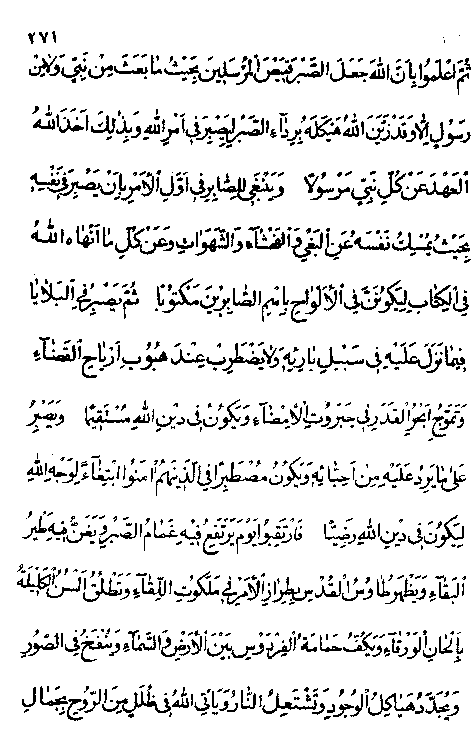 ٢٧١
ثُمَّ اعْلَمُوا بِأَنَّ اللهَ جَعَلَ الصَّبْرَ قَمِيْصَ الْمُرْسَلِينَ بِحَيْثُ مَا بَعَثَ مِنْ نَبِيٍّ وَلَا مِنْ
رَسُولٍ إِلَّا وَقَدْ زَيَّنَ اللهُ هَيْكَلَهُ بِرِدَآءِ الصَّبْرِ لِيَصْبِرَ فِي أَمْرِ اللهِ وَبِذَلِكَ أَخَذَ اللهُ
الْعَهْدَ عَنْ كُلِّ نَبِيٍّ مَرْسُولًا وَيَنْبَغِي لِلصَّابِرِ فِي أَوَّلِ الْأَمْرِ بِأَنْ يَصْبِرَ فِي نَفْسِهِ
بِحَيْثُ يُمْسِكُ نَفْسَهُ عَنِ الْبَغْيِ وَالْفَحْشَآءِ وَالشَّهَوَاتِ وَعَنْ كُلِّ مَا أَنْهَاهُ اللهُ
فِي الْكِتَابِ لِيَكُونَ فِي الْأَلْوَاحِ بِاسْمِ الصَّابِرِينَ مَكْتُوبًا ثُمَّ يَصْبِرُ فِي الْبَلَايَا
فِيمَا نَزَلَ عَلَيْهِ فِي سَبِيلِ بَارِئِهِ وَلَا يَضْطَرِبُ عِنْدَ هُبُوبِ أَرْيَاحِ الْقَضَآءِ
وَتَمَوُّجِ أَبْحُرِ الْقَدَرِ فِي جَبَرُوتِ الْإِمْضَآءِ وَيَكُونُ فِي دِينِ اللهِ مُسْتَقِيمًا وَيَصْبِرُ
عَلَى مَا يَرِدُ عَلَيْهِ مِنْ أَحِبَّائِهِ وَيَكُونُ مُصْطَبِرًا فِي الَّذِينَهُمْ آمَنُوا ابْتِغَآءً لِوَجْهِ اللهِ
لِيَكُونَ فِي دِينِ اللهِ رَضِيًّا فَارْتَقِبُوا يَوْمَ يَرْتَفِعُ فِيهِ غَمَامُ الصَّبْرِ وَيَغَنُّ فِيهِ طَيْرُ
الْبَقَآءِ وَيَظْهَرُ طَاوُسُ الْقُدْسِ بِطِرَازِ الْأَمْرِ فِي مَلَكُوتِ اللِّقَآءِ وَتَطْلُقُ أَلْسُنُ الْكَلِيلَةُ
بِأَلْحَانِ الْوَرْقَآءِ وَيَكُفُّ حَمَامَةُ الْفِرْدَوْسِ بَيْنَ الْأَرْضِ وَالسَّمَآءِ وَيُنْفَخُ فِي الصُّورِ
وَيُجَدَّدُ هَيَاكِلُ الْوُجُودِ وَتَشْتَعِلُ النَّارُ وَيَأْتِي اللهُ فِي ظُلَلٍ مِنَ الرُّوحِ بِجَمَالِ